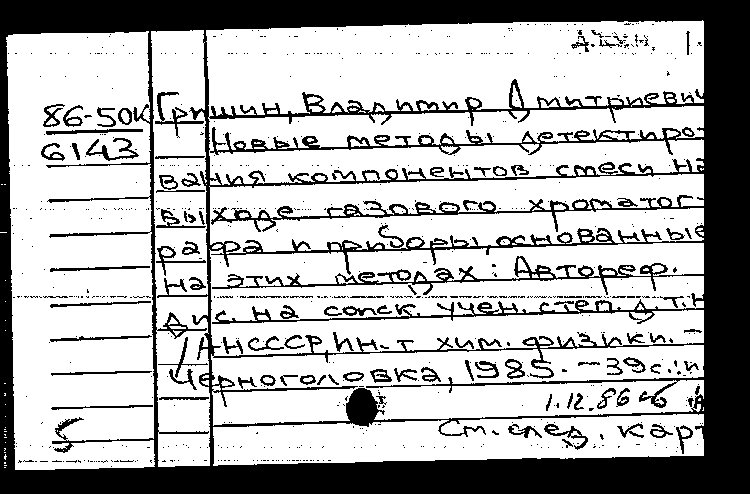 86-50к
6143
Гришин, Владимир Дмитриевич
Новые методы детектиро-
вания компонентов смеси на
выходе газового хроматог-
рафа и приборы, основанные
на этих методах: Автореф.
дис. на соиск. учен. степ. д.т.н
/АН СССР, Ин-т хим. физики. -
Черноголовка, 1985. - 39 с.: и
1.12.86
5
См. след. карт